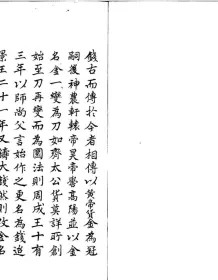 錢古而傳於今者相傳以黃帝貨金為冠
嗣復神農軒轅帝昊帝嚳高陽並以金
名金一變為刀如齊太公貨莫詳所創
始至刀再變而為圜法則周成王十有
三年以師尚父言始作之更名為錢迨
景王二十一年又鑄大錢然則改金名